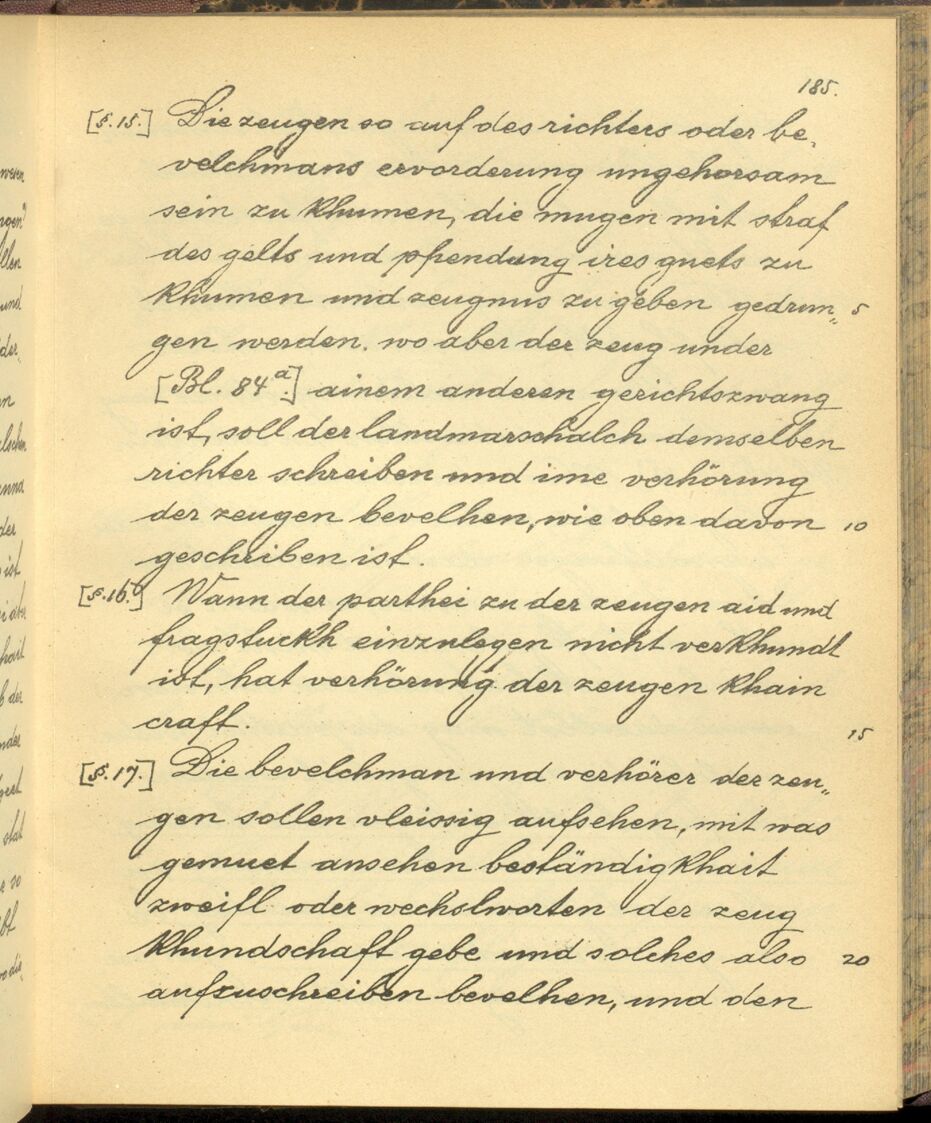 185.
[§. 15.] Die zeugen so auf des richters oder be„
velchmans ervorderung ungehorsam
sein zu khumen, die mugen mit straf
des gelts und phendung ires guets zu
khumen und zeugnus zu geben gedrun„ 5
gen werden. wo aber der zeug under
[Bl. 84a.] ainem anderen gerichtszwang
ist, soll der landmarschalch demselben
richter schreiben und ime verhörung
der zeugen bevelhen, wie oben davon 10
geschriben ist.
[§. 16.] Wann der parthei zu der zeugen aid und
fragstuckh einzulegen nicht verkhundt
ist, hat verhörung der zeugen khain
craft. 15
[§. 17.] Die bevelchman und verhörer der zeu„
gen sollen vleissig aufsehen, mit was
gemuet ansehen beständigkhait
zweifl oder wechslworten der zeug
khundschaft gebe und solches also 20
aufzuschreiben bevelhen, und den